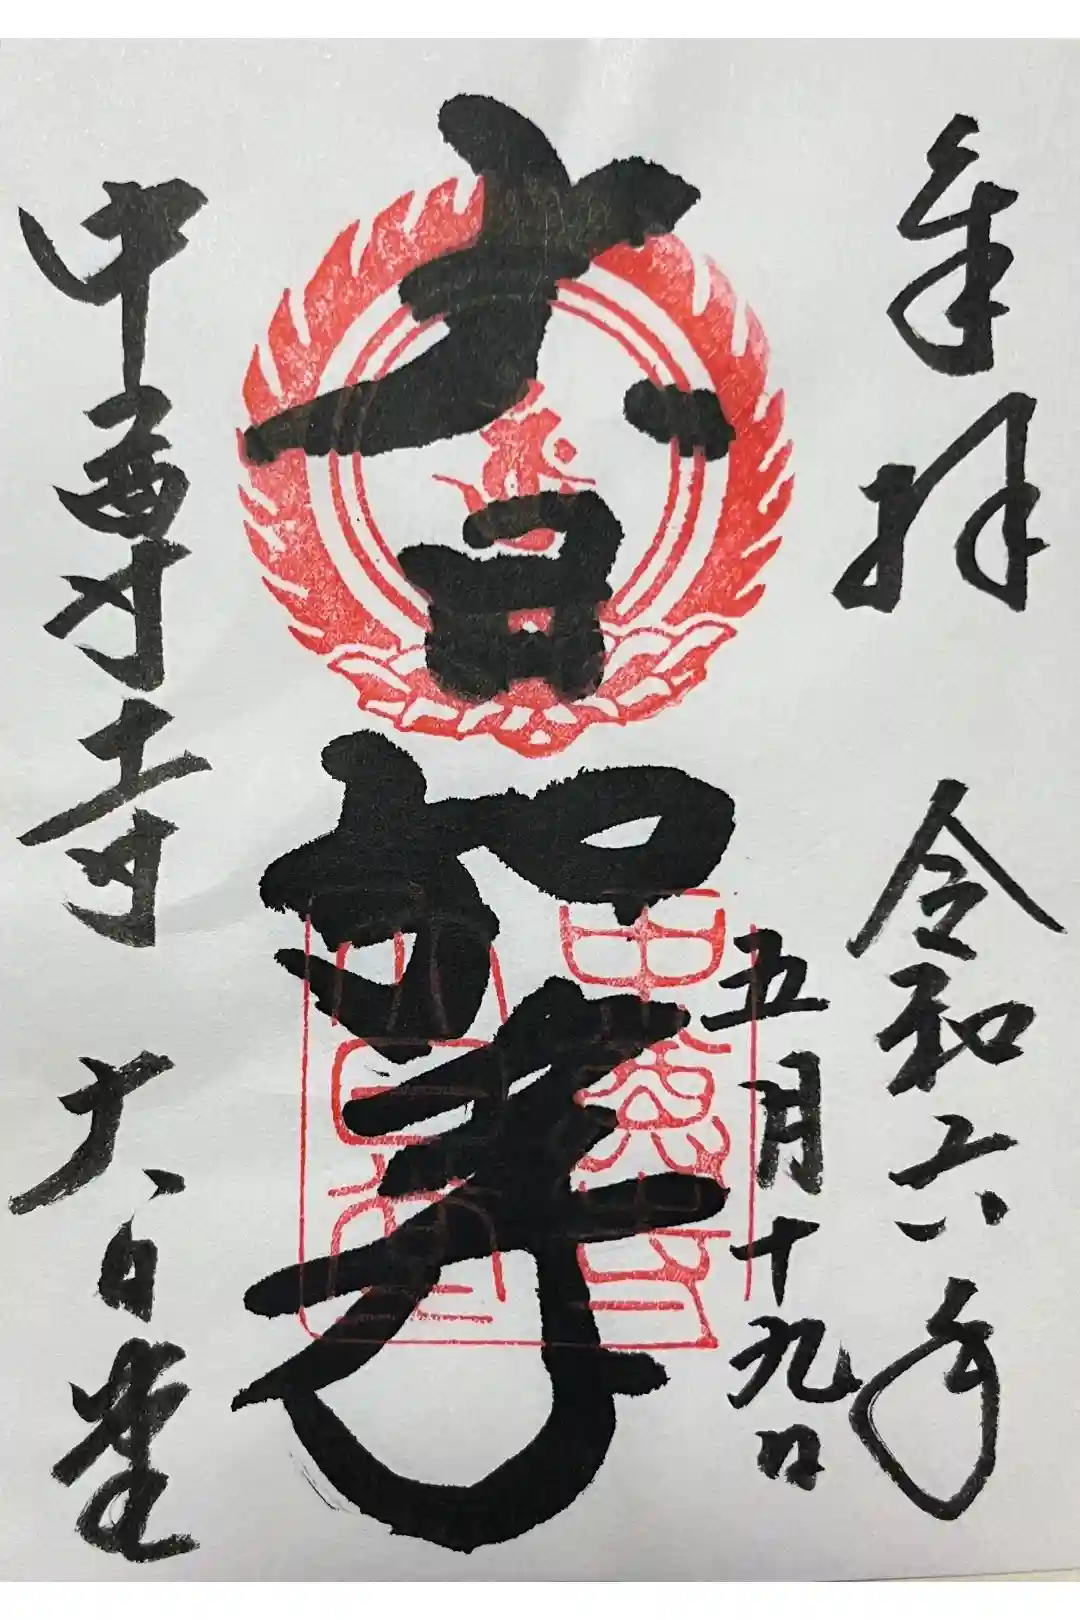 奉拝 令和六年
五月十九日
大日如来
中尊寺 大日堂